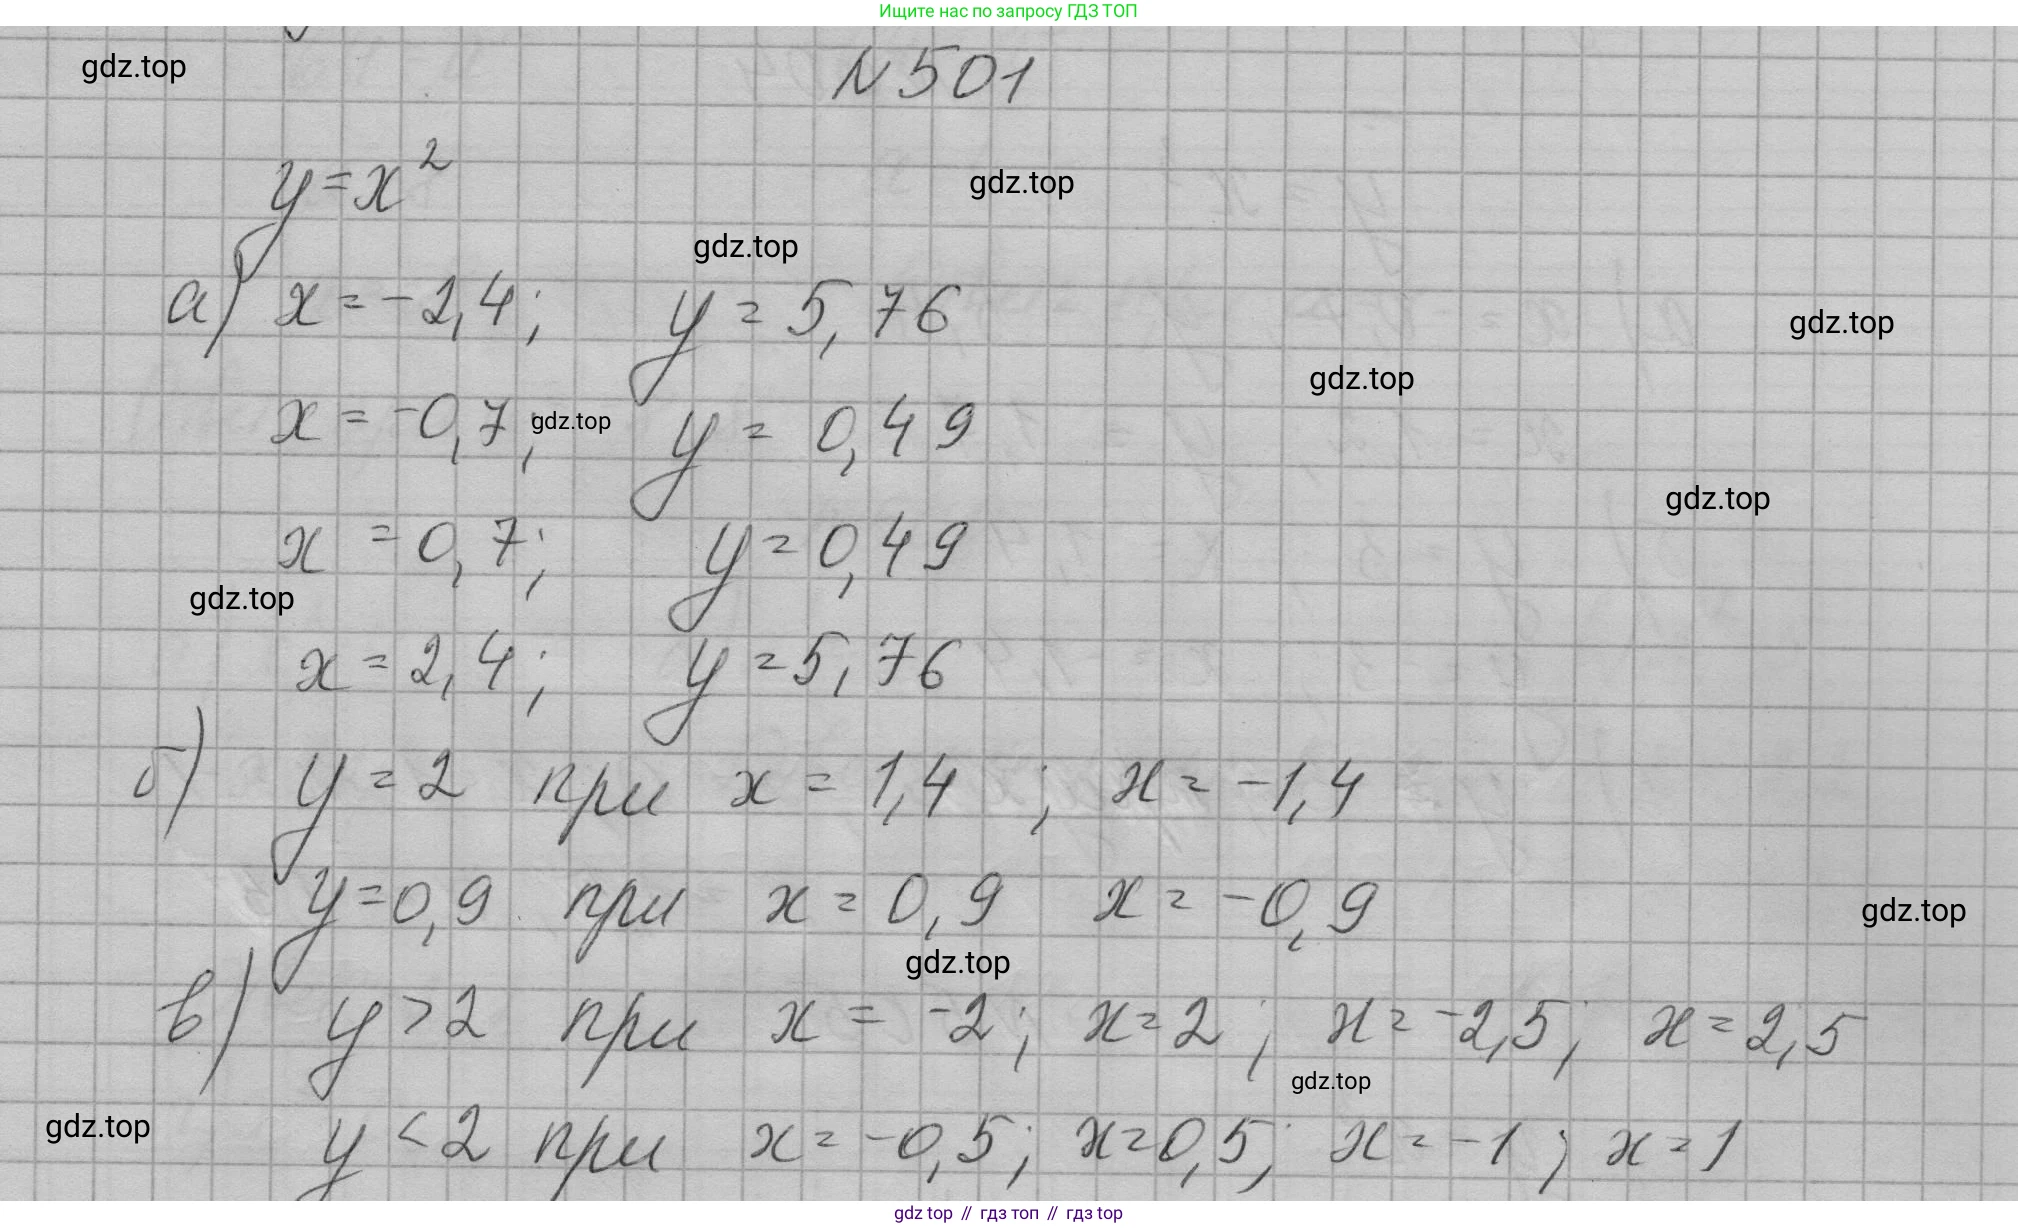 Ищите нас по запросу ГДЗ ТОП
gdz.top
N501
y=x²
gdz.top
gdz.top
а) x=-2,4; y=5,76
gdz.top
gdz.top
x=-0,7; gdz.top y=0,49
gdz.top
x=0,7; y=0,49
gdz.top
x=2,4; y=5,76
б) y=2 при x=1,4; x=-1,4
y=0,9 при x=0,9 x=-0,9
gdz.top
gdz.top
в) y>2 при x=-2; x=2; x=-2,5; x=2,5
gdz.top
gdz.top
y<2 при x=-0,5; x=0,5; x=-1; x=1
gdz top // гдз топ // гдз top